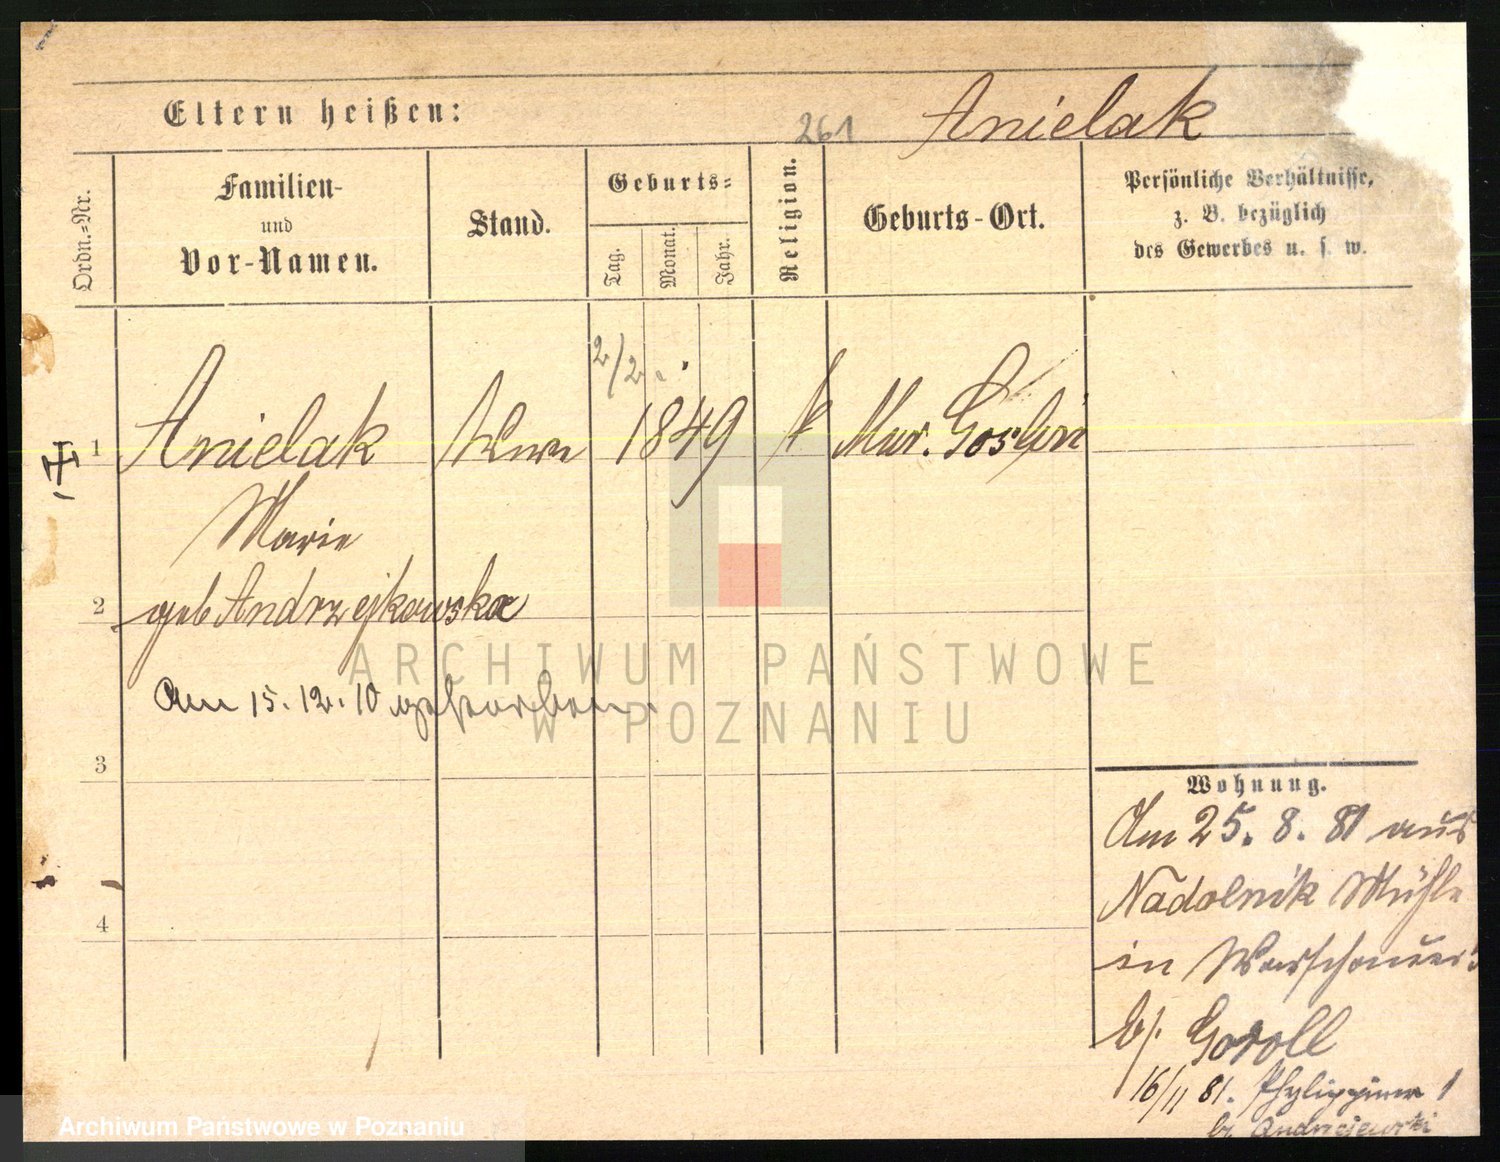 Eltern heißen:
261 Anielak
Ordn.-Nr.
Familien-
und
Vor-Namen.
Stand.
Geburts-
Tag.
Monat.
Jahr.
Religion.
Geburts-Ort.
Persönliche Verhältnisse,
z. B. bezüglich
des Gewerbes u. s. w.
2/2.
1 Anielak Wwe 1849 k Mur. Goslin
Marie
2 geb Andrzejkowska
Am 15. 12. 10 gestorben.
3
4
Wohnung.
Am 25. 8. 81 aus
Nadolnik Mühle
in Warschauer
b/. Goroll
16/11 81. 1
b/ Andrzejewski
ARCHIWUM PAŃSTWOWE
W POZNANIU
Archiwum Państwowe w Poznaniu